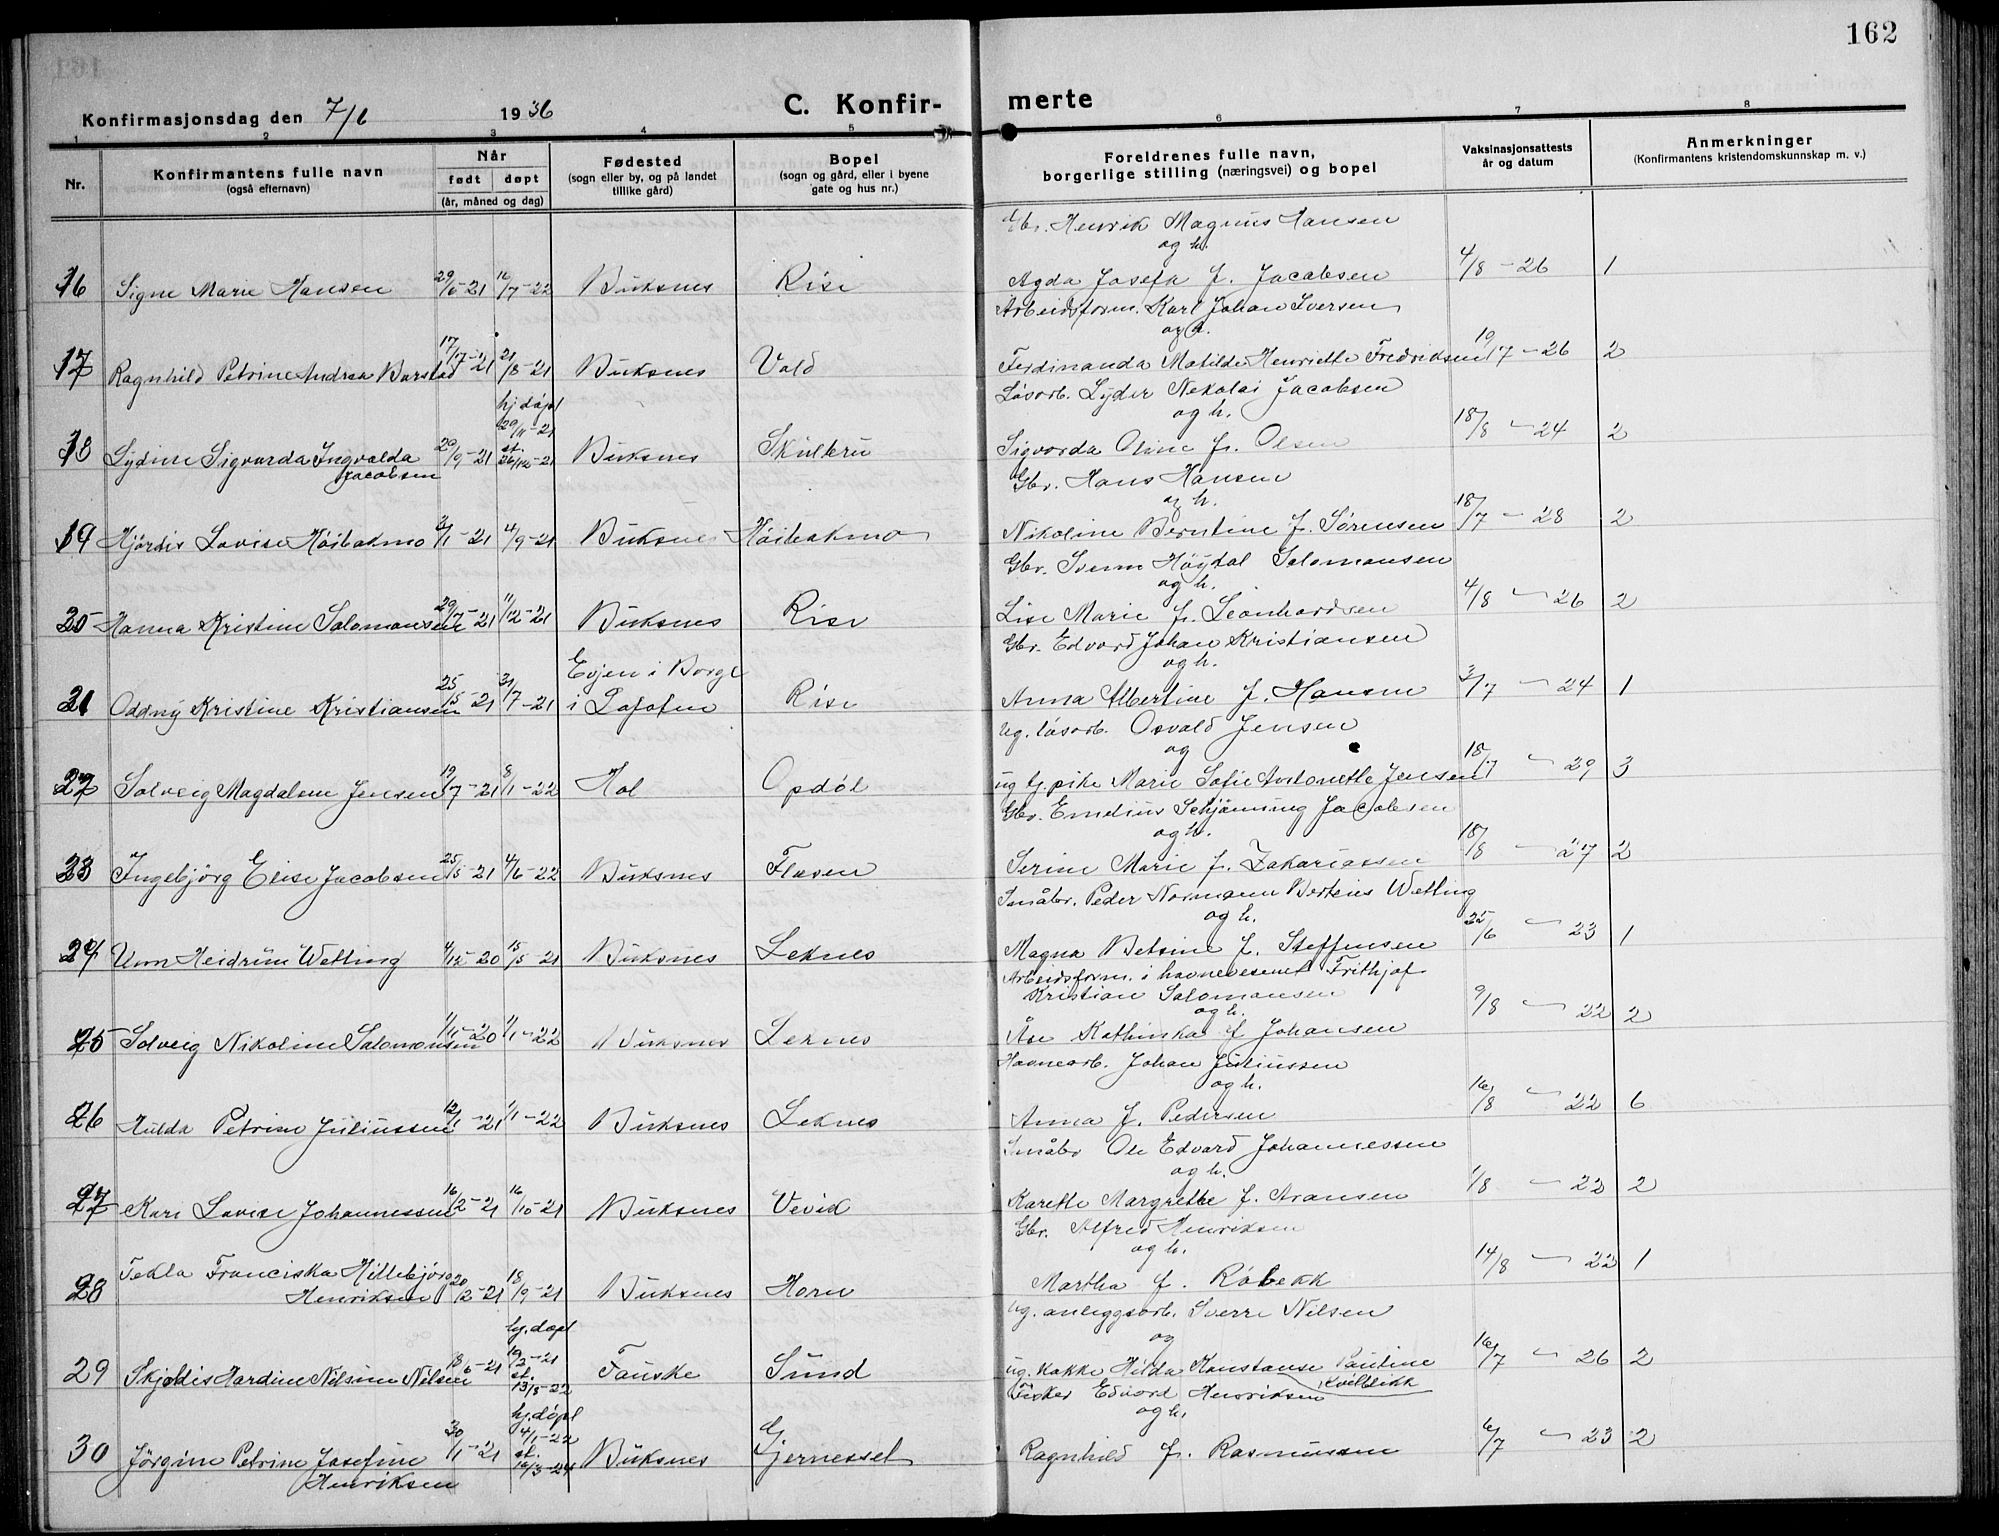 162
Konfirmasjonsdag den 7/6 1936 C. Konfirmerte
1 2 3 4 5 6 7 8
Nr. Konfirmantens fulle navn (også efternavn) Når født døpt (år, måned og dag) Fødested (sogn eller by, og på landet tillike gård) Bopel (sogn og gård, eller i byene gate og hus nr.) Foreldrenes fulle navn, borgerlige stilling (næringsvei) og bopel Vaksinasjonsattests år og datum Anmerkninger (Konfirmantens kristendomskunnskap m. v.)
Gbr. Henrik Magnus Hansen
og h.
16 Signe Marie Hansen 29/5-21 16/7-22 Buksnes Rise Agda Josefa f. Jacobsen 4/8-26 1
Arbeidsform. Karl Johan Iversen
og h.
17 Ragnhild Petrine Andrea Barstad 17/7-21 21/8-21 Buksnes Vold Ferdinanda Matilde Henriette Fredriksen 19/7-26 2
Løsarb. Lyder Nekolai Jacobsen
hj.døpt og h.
20/11-21
18 Lydine Sigvarda Ingvalda 20/9-21 st. 26/12-21 Buksnes Skulbru Sigvarda Oline f. Olsen 18/8-24 2
Jacobsen
Gbr. Hans Hansen
og h.
19 Hjørdis Lovise Höibakmo 3/1-21 4/9-21 Buksnes Höibakmo Nikoline Berntine f. Sørensen 18/7-28 2
Gbr. Svenn Høydal Salomonsen
og h.
20 Hanna Kristine Salomonsen 29/7-21 11/12-21 Buksnes Rise Lise Marie f. Leonhardsen 4/8-26 2
Gbr. Edvard Johan Kristiansen
Evjen i Borge og h.
21 Oddny Kristine Kristiansen 25/5-21 31/7-21 i Lofoten Rise Anna Albertine f. Hansen 3/7-24 1
Ug. løsarb. Osvald Jensen
og
22 Solveig Magdalene Jensen 19/7-21 8/1-22 Hol Opdøl ug tj.pike Marie Sofie Antonette Jensen 18/7-29 3
Gbr. Emelius Schjänning Jacobsen
og h.
23 Ingebjörg Elise Jacobsen 25/5-21 4/6-22 Buksnes Flæsen Serine Marie f. Zakariassen 18/8-27 2
Småbr. Peder Normann Berteus Wetting
og h.
24 Unn Heidrun Wetting 4/12-20 15/5-21 Buksnes Leknes Magna Betsine f. Steffensen 25/6-23 1
Arbeidsform. i havnevesenet Frithjof
Kristian Salomonsen
og h.
25 Solveig Nikoline Salomonsen 1/11-20 1/1-22 Buksnes Leknes Åse Kathinka f Johansen 9/8-22 2
Havnearb. Johan Juliussen
og h.
26 Hulda Petrine Juliussen 12/1-21 1/1-22 Buksnes Leknes Anna f. Pedersen 16/8-22 6
Småbr Ole Edvard Johannessen
og h.
27 Kari Lovise Johannessen 16/2-21 16/10-21 Buksnes Vevik Karette Margrethe f. Aronsen 1/8-22 2
Gbr. Alfred Henriksen
og h.
Tekla Franciska Hillebjörg
28 Henriksen 20/2-21 18/9-21 Buksnes Horn Martha f. Röbekk 14/8-22 1
Ug. anleggsarb. Sverre Nilsen
hj.døpt og
19/2-21
29 Skjoldis Hardine Nilsine Nilsen 18/6-21 st. 13/8-22 Fauske Sund ug. kokke Hilda Konstanse Pauline 16/7-26 2
Kvilblikk
Fisker Edvard Henriksen
hj.døpt og h.
4/1-22
30 Jörgine Petrine Josefine 30/1-21 st. 16/3-24 Buksnes Gjernesset Ragnhild f. Rasmussen 6/7-23 2
Henriksen